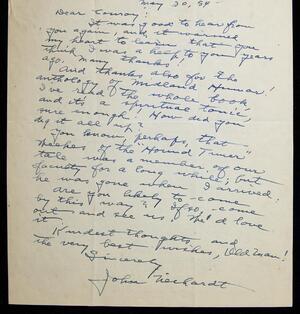 May 30, '54
Dear Conroy:
It was good to hear from
you again, and it warmed
my heart to learn that you
think I was a help to you years
ago. Many thanks.
And thanks also for the
anthology of Midland Humor!
I've read the whole book
and it's a spiritual tonic,
sure enough! How did you
dig it all up?
You know, perhaps, that
of the "Hound Tuner"
tale was a member of our
faculty for a long while; but
he was gone when I arrived.
Are you likely to come
by this way? If so, come
out and see us. We'd love
it
Kindest thoughts and
the very best wishes, Old Man!
Sincerely
John Neihardt